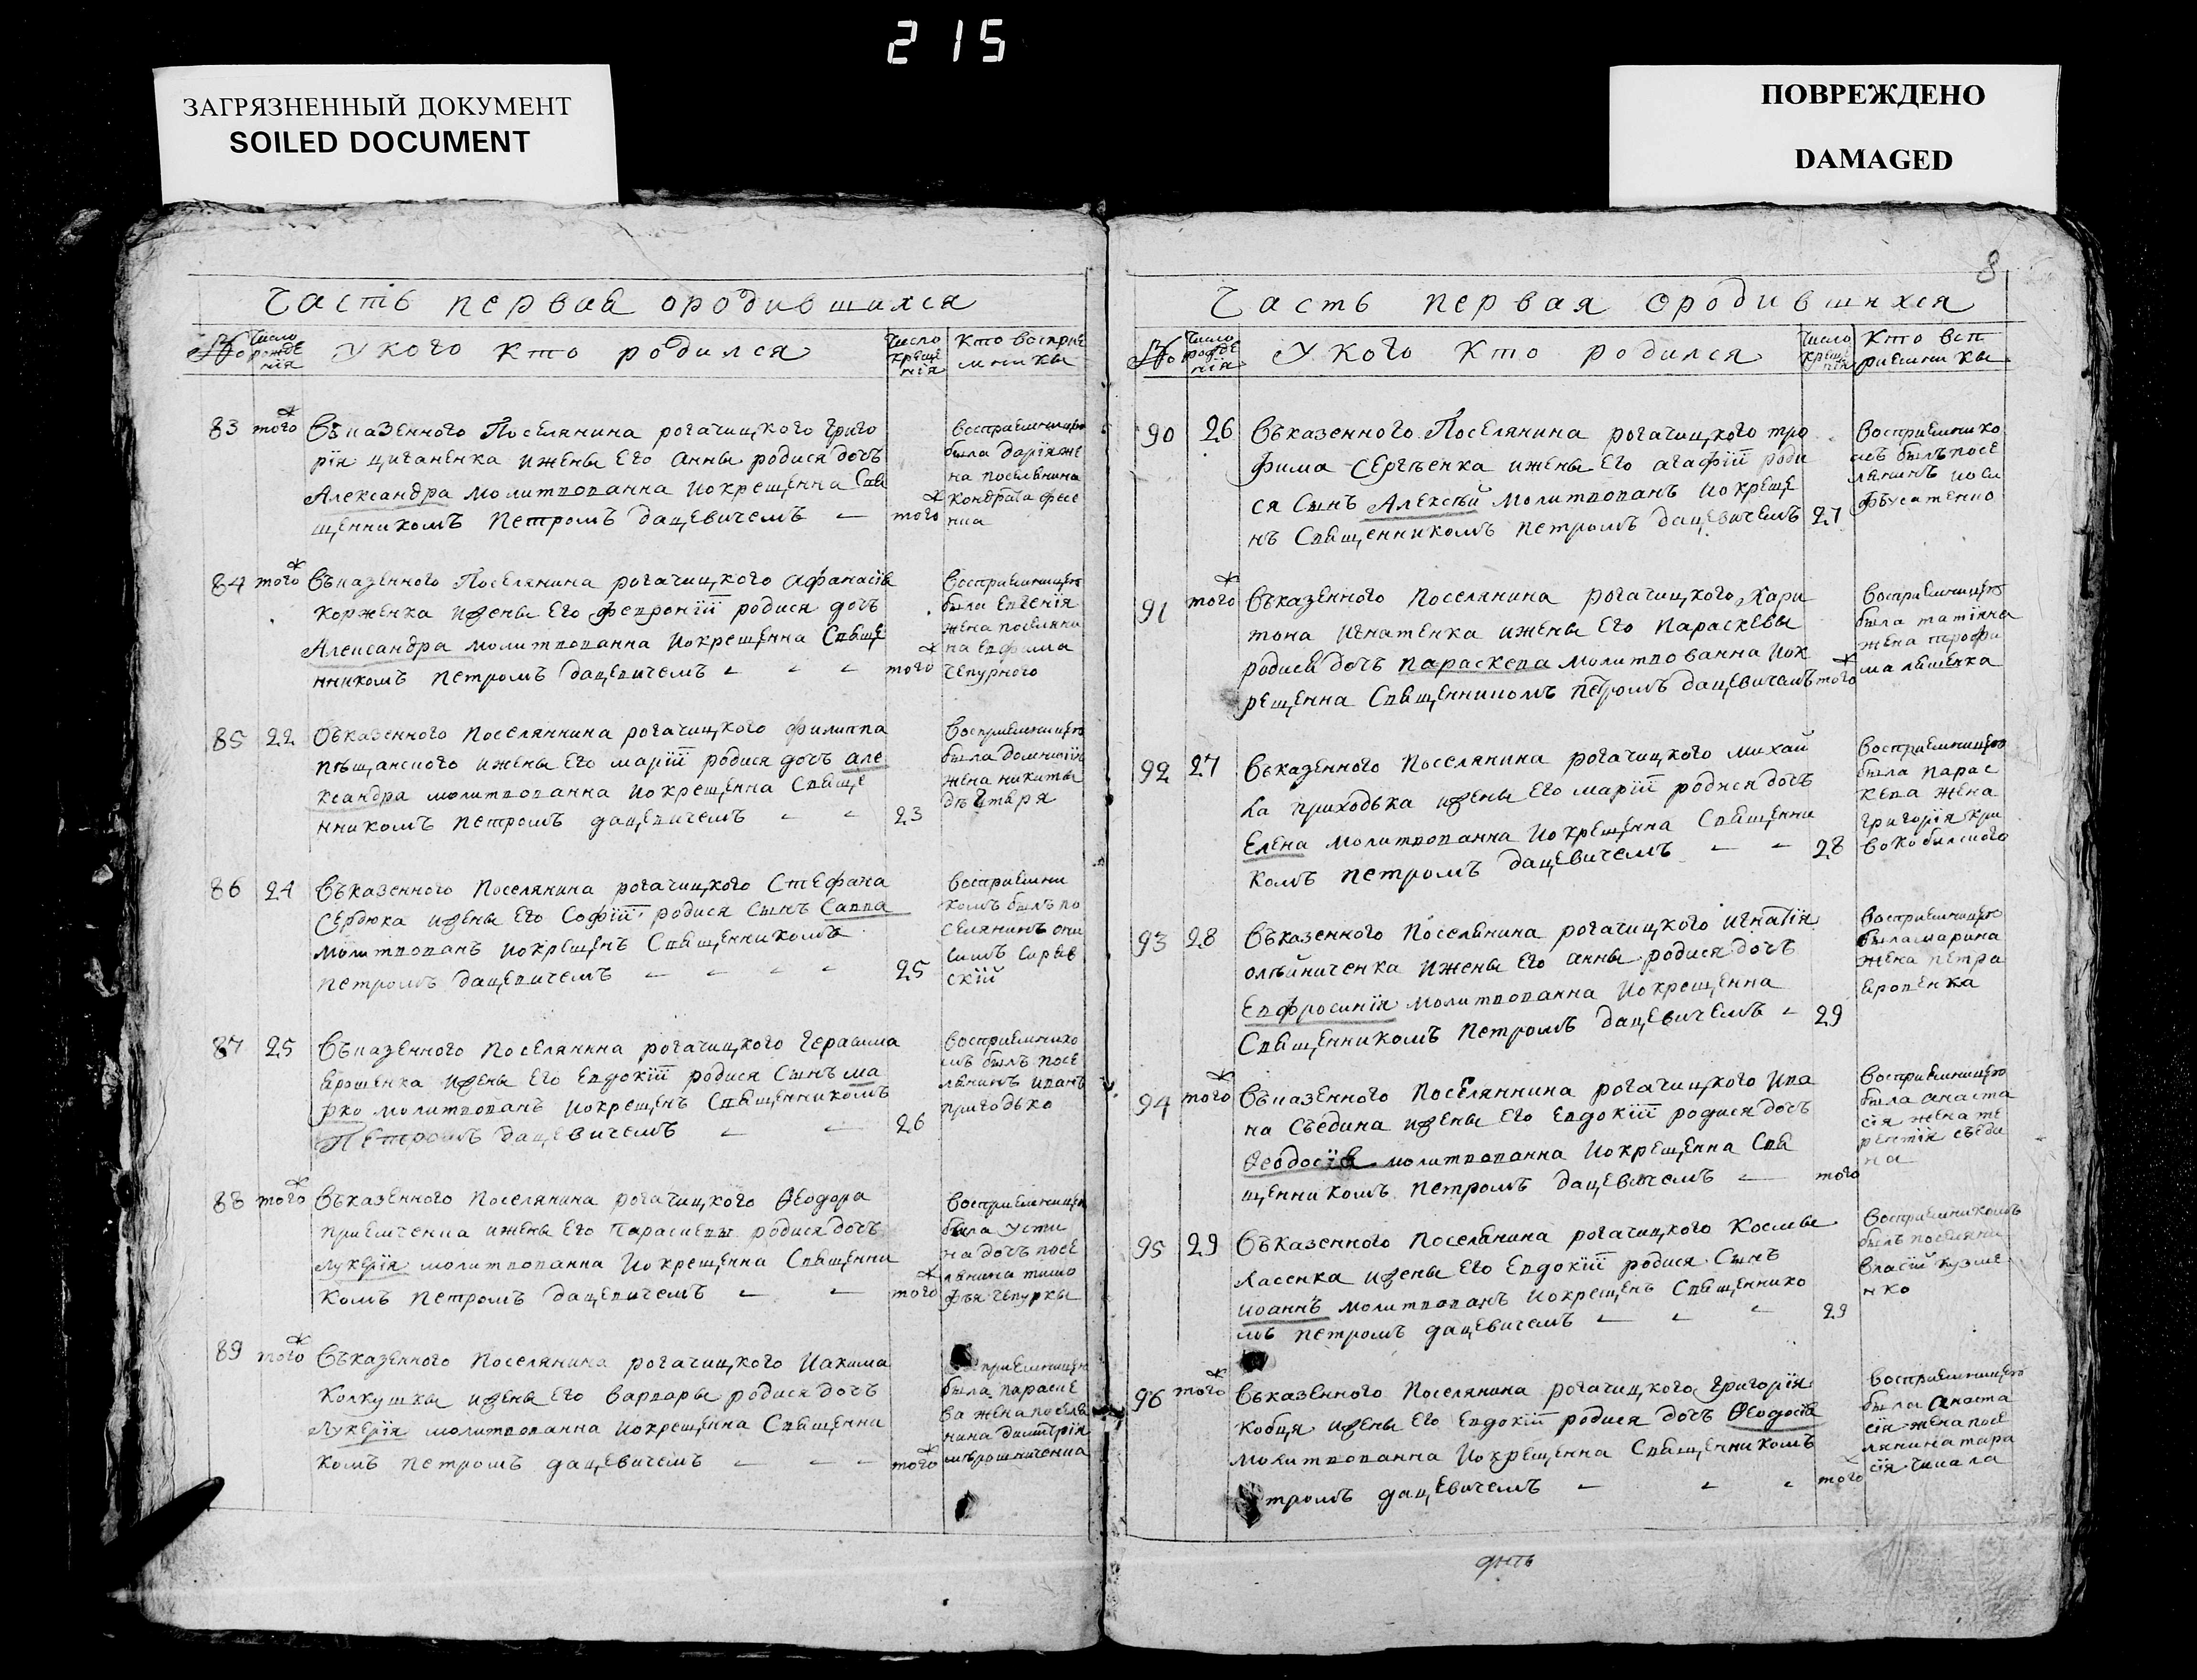 215
ЗАГРЯЗНЕННЫЙ ДОКУМЕНТ
SOILED DOCUMENT
ПОВРЕЖДЕНО
DAMAGED
Часть первая ородившихся
№ Число рожденія
У кого кто родился
Число крещенія
Кто восприе
мники
83 того
Въказенного Поселянина рогачицкого Григо
рія циганенка ижены Его Анны родися дочъ
Александра молитвованна Іокрещенна Свя
щенникомъ Петромъ дацевичемъ
того
воспрыемницею
была дарія же
на поселянина
Кондрата
84 того
Въказенного Поселянина рогачицкого Афанасія
Корженка ижены Его февроніи родися дочъ
Александра молитвованна Іокрещенна Свяще
нникомъ Петромъ дацевичемъ
того
Восприемницею
была Евгенія
жена поселяни
на Евфима
Чепурного
85 22
Въказенного Поселяннина рогачицкого филиппа
пѣщанского ижены Его маріи родися дочъ але
ксандра молитвованна Іокрещенна Свяще
нникомъ Петромъ дацевичемъ
23
Восприемницею
была домникія
жена никиты
дѣгтяря
86 24
Въказенного Поселянина рогачицкого Стефана
Сердюка ижены Его Софіи родися Сынъ Савва
молитвованъ Іокрещенъ Священникомъ
петромъ дацевичемъ
25
Восприемни
комъ былъ по
селянинъ они
симъ
скій
87 25
Въказенного Поселянина рогачицкого Герасима
Ярошенка ижены Его Евдокіи родися Сынъ ма
рко молитвованъ Іокрещенъ Священникомъ
Петромъ дацевичемъ
26
Восприемнико
мъ былъ посе
лянинъ иванъ
пригодько
88 того
Въказенного Поселянина рогачицкого Ѳеодора
приемченка ижены Его Параскевы родися дочъ
Лукерія молитвованна Іокрещенна Священни
комъ Петромъ дацевичемъ
того
Восприемницею
была Усти
на дочъ посе
лянина тимо
фѣя Чепурки
89 того
Въказенного Поселянина рогачицкого Иакима
Колкушки ижены Его варвары родися дочъ
Лукерія молитвованна Іокрещенна Священни
комъ Петромъ дацевичемъ
того
приемницею
была параске
ва жена посел
нина димитрія
мѣрошниченка
8
Часть первая ородившихся
№ Число рожденія
У кого кто родился
Число крещенія
Кто всп
риемники
90 26
Въказенного Поселянина рогачицкого тро
фима Сергѣенка ижены Его агафіи роди
ся Сынъ Алексѣй молитвованъ Іокреще
нъ Священникомъ Петромъ дацевичемъ
27
Восприемнико
мъ былъ посе
лянинъ иоси
фъусатенко
91 того
Въказенного Поселянина рогачицкого Хари
тона Игнатенка ижены Его Параскевы
родися дочъ Параскева молитвованна Іок
рещенна Священникомъ Петромъ дацевичемъ
того
Восприемницею
была татіяна
жена трофи
ма ляшенка
92 27
Въказенного Поселянина рогачицкого михай
ла приходька ижены Его маріи родися дочъ
Елена молитвованна Іокрещенна Священни
комъ Петромъ дацевичемъ
28
Восприемницею
была парас
кева жена
григорія кри
вокобылского
93 28
Въказенного Поселянина рогачицкого игнатія
олѣйниченка ижены Его анны родися дочъ
Евфросинія молитвованна Іокрещенна
Священникомъ Петромъ дацевичемъ
29
Восприемницею
была марина
жена петра
яровенка
94 того
Въказенного Поселяннина рогачицкого ива
на Съедина ижены Его Евдокіи родися дочъ
Ѳеодосія молитвованна Іокрещенна Свя
щенникомъ Петромъ дацевичемъ
того
Восприемницею
была анаста
сія жена те
рентія съеди
на
95 29
Въказенного Поселянина рогачицкого Космы
Ласенка ижены Его Евдокіи родися Сынъ
иоаннъ молитвованъ Іокрещенъ Священнико
мъ Петромъ дацевичемъ
29
Восприемникомъ
былъ поселяни
власій кузме
нко
96 того
Въказенного Поселянина рогачицкого григорія
Кобця ижены Его Евдокіи родися дочъ Ѳеодосія
молитвованна Іокрещенна Священникомъ
тромъ дацевичемъ
того
Восприемницею
была анаста
сія жена посе
лянина тара
сія чикала